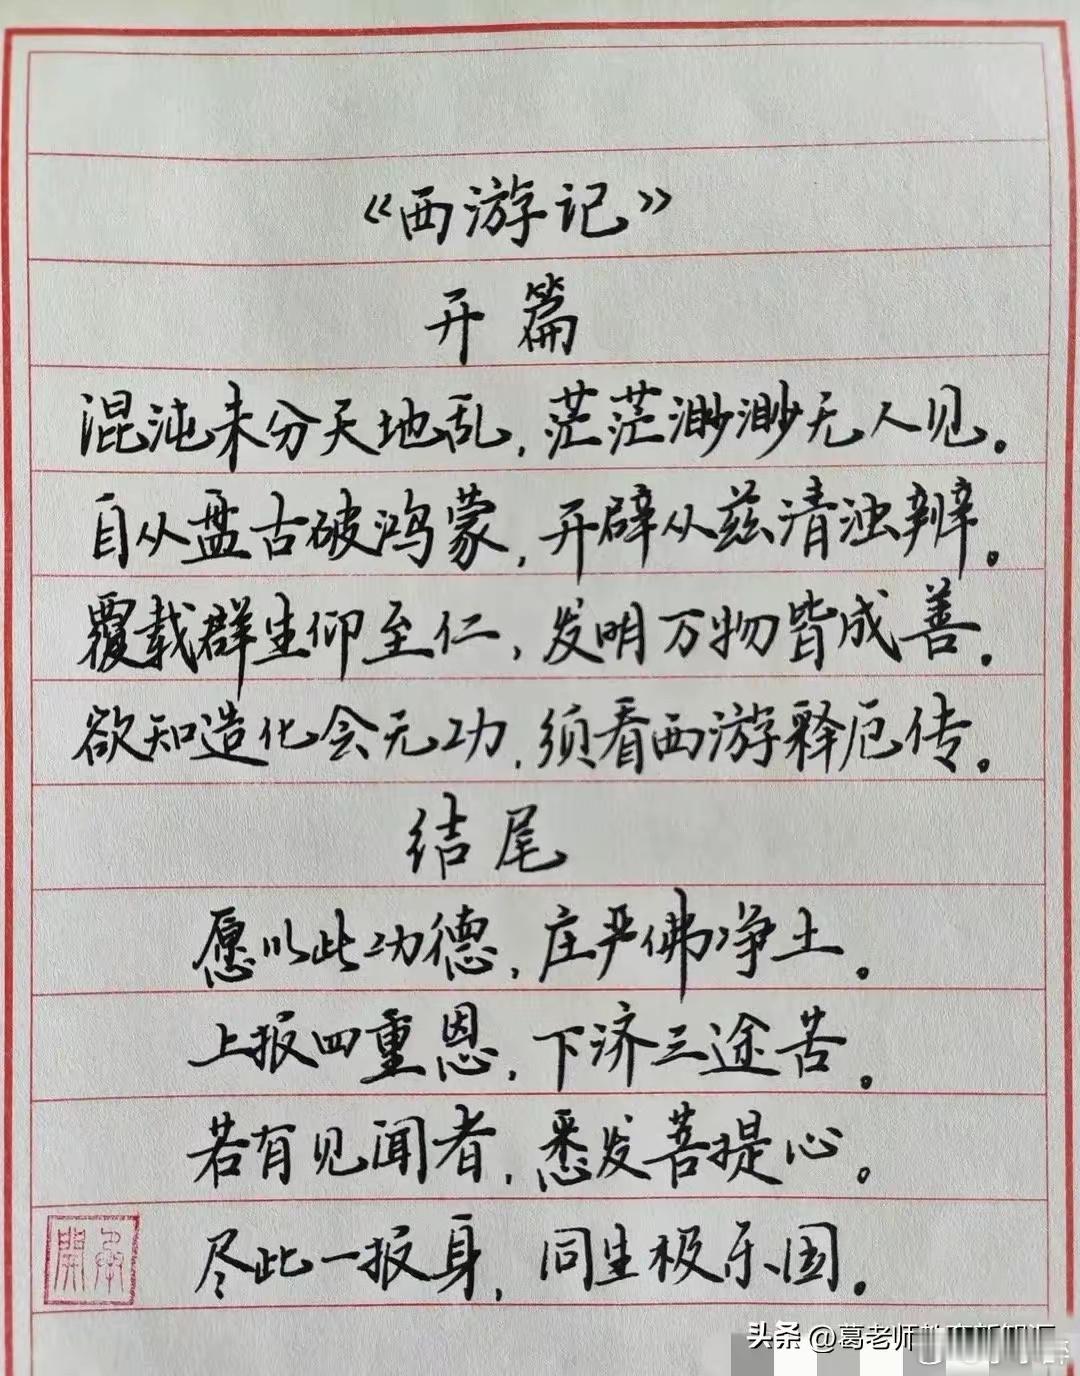 《西游记》
开篇
混沌未分天地乱，茫茫渺渺无人见。
自从盘古破鸿蒙，开辟从兹清浊辨。
覆载群生仰至仁，发明万物皆成善。
欲知造化会元功，须看西游释厄传。
结尾
愿以此功德，庄严佛净土。
上报四重恩，下济三途苦。
若有见闻者，悉发菩提心。
尽此一报身，同生极乐国。
头条 @葛老师